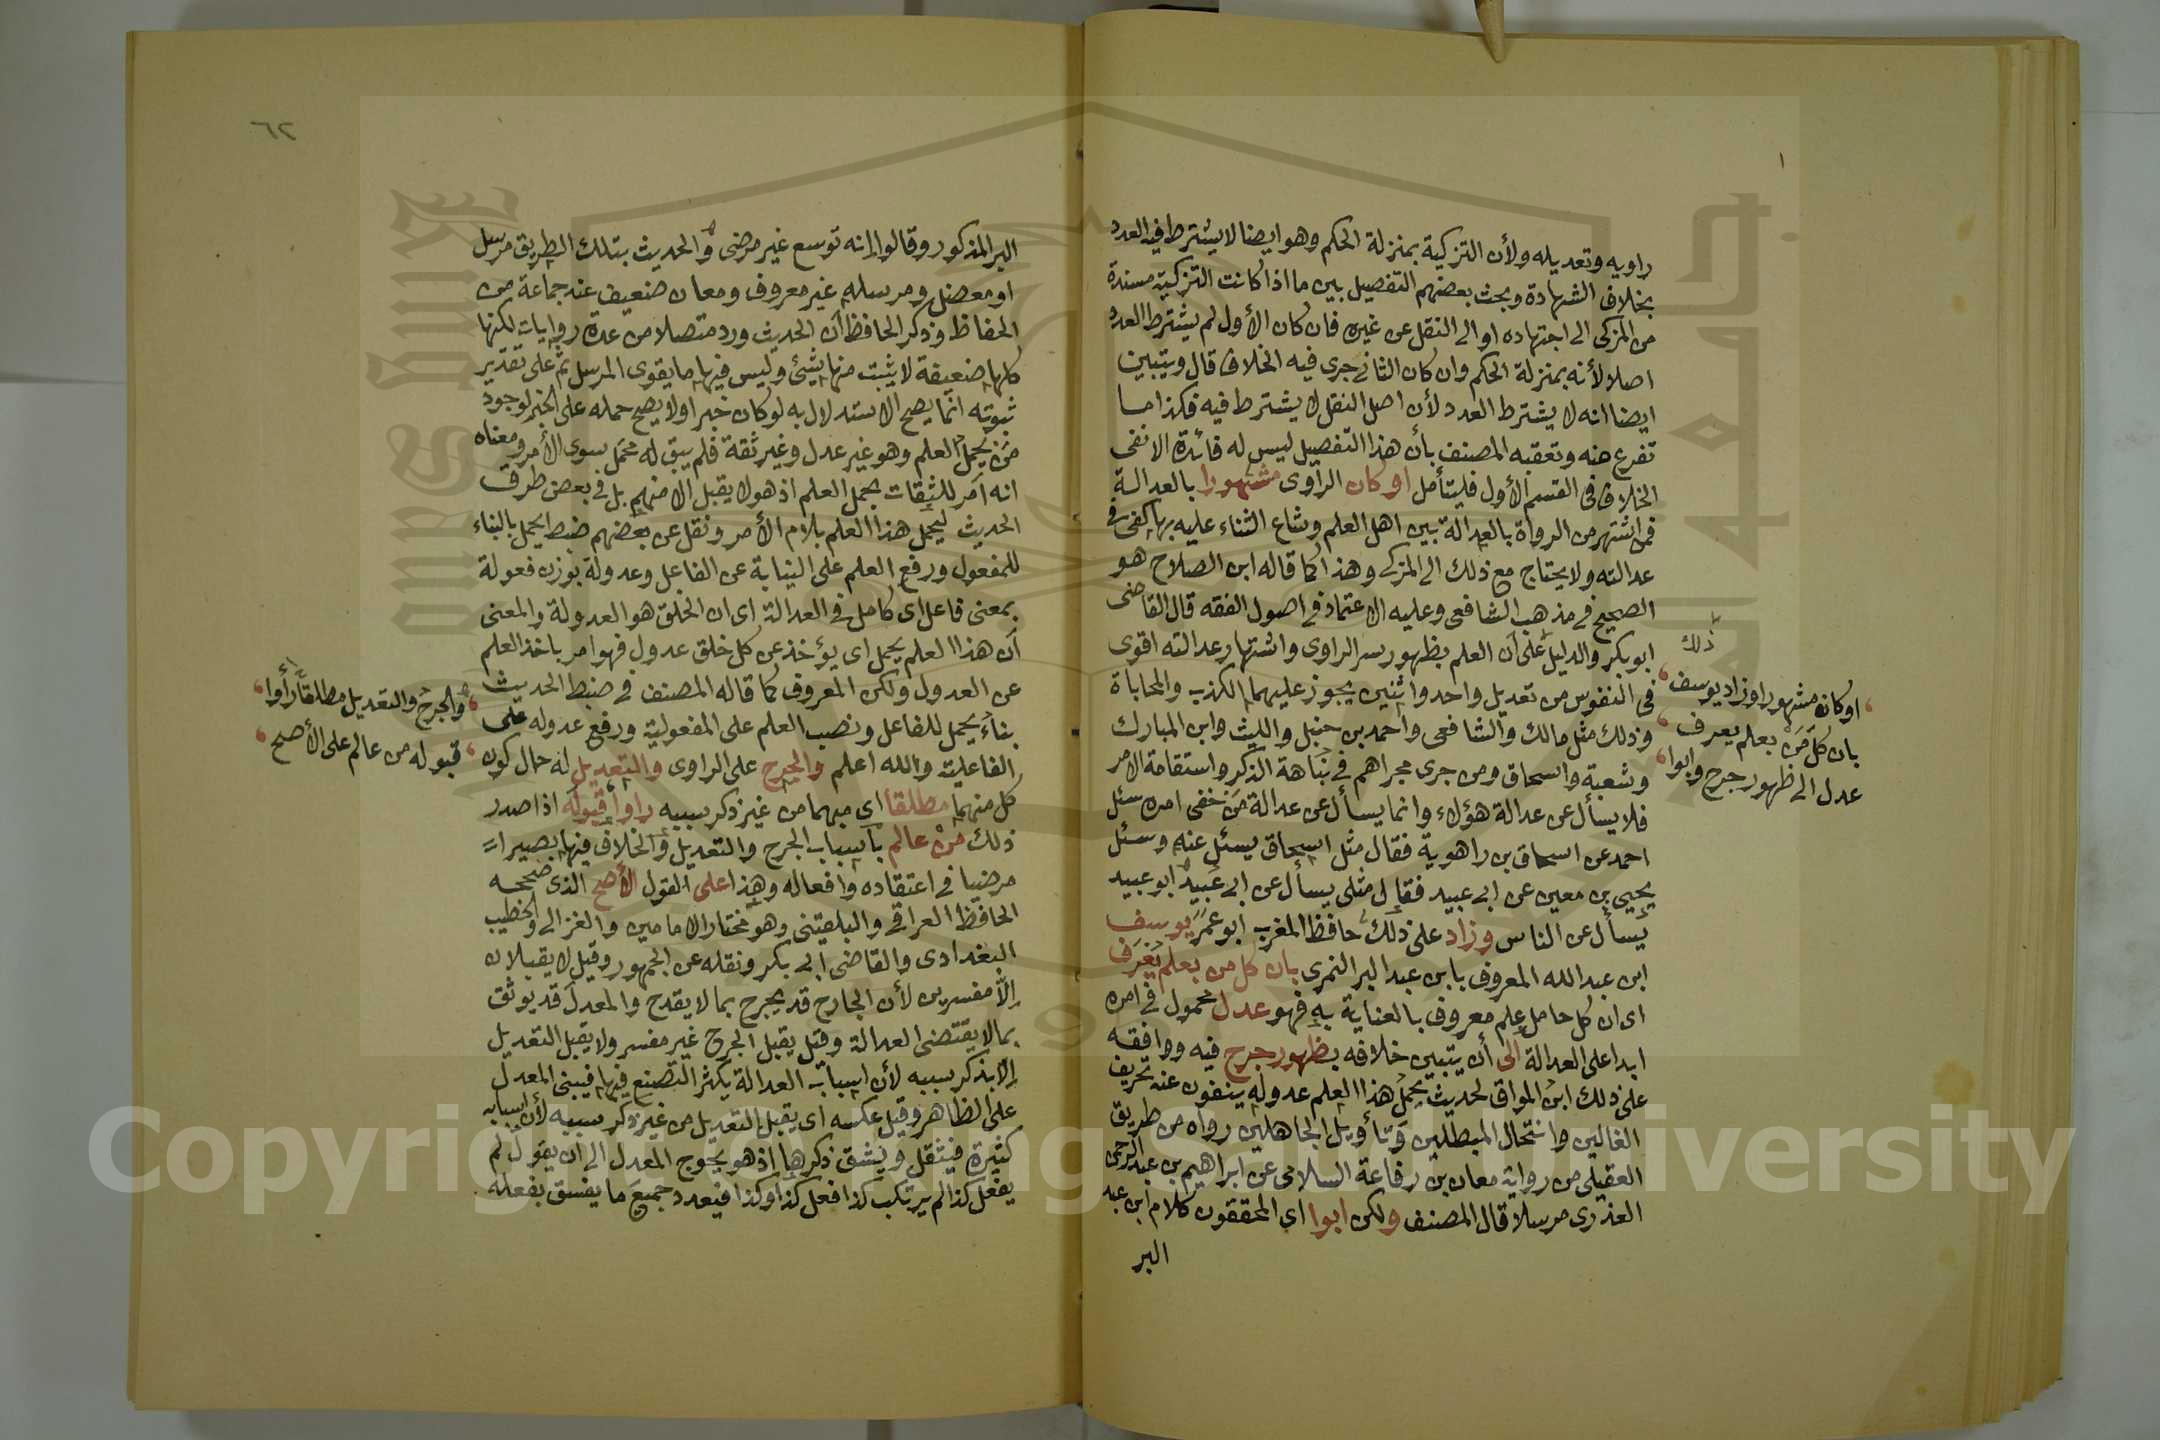 راويه وتعديله ولأن التزكية بمنزلة الحكم وهو ايضا لا يشترط فيه العدد
بخلاف الشهادة وبحث بعضهم التفصيل بين ما اذا كانت التزكية مسندة
من المزكى الى اجتهاده او الى النقل عن غيره فان كان الأول لم يشترط العدد
اصلا لأنه بمنزلة الحكم وان كان الثانى جرى فيه الخلاف قال ويتبين
ايضا انه لا يشترط العدد لأن اصل النقل لا يشترط فيه فكذا ما
تفرع عنه وتعقبه المصنف بأن هذا التفصيل ليس له فائدة الا نفى
الخلاف فى القسم الأول فليتأمل او كان الراوى مشتهورا بالعدالة
فمن اشتهر من الرواة بالعدالة بين اهل العلم وشاع الثناء عليه بها كفى فى
عدالته ولا يحتاج مع ذلك الى المزكى وهذا كما قاله ابن الصلاح هو
الصحيح فى مذهب الشافعى وعليه الاعتماد فى اصول الفقه قال القاضى
ابو بكر والدليل على ذلك أن العلم بظهور سر الراوى واشتهار عدالته اقوى
فى النفوس من تعديل واحد واثنين يجوز عليهما الكذب والمحاباة
وذلك مثل مالك والشافعى واحمد بن حنبل والليث وابن المبارك
وشعبة واسحاق ومن جرى مجراهم فى نباهة الذكر واستقامة الامر
فلا يسأل عن عدالة هؤلاء وانما يسأل عن عدالة من خفى امره سئل
احمد عن اسحاق بن راهوية فقال مثل اسحاق يسئل عنه وسئل
يحيى بن معين عن ابى عبيد فقال مثلى يسأل عن ابى عبيد ابو عبيد
يسأل عن الناس وزاد على ذلك حافظ المغرب ابو عمر يوسف
ابن عبد الله المعروف بابن عبد البر النمرى بان كل من بعلم يعرف
اى ان كل حامل علم معروف بالعناية به فهو عدل محمول فى امره
ابدا على العدالة الى أن يتبين خلافه بظهور جرح فيه ووافقه
على ذلك ابن المواق لحديث يحمل هذا العلم عدوله ينفون عنه تحريف
الغالين وانتحال المبطلين وتأويل الجاهلين رواه من طريق
العقيلى من رواية معان بن رفاعة السلامى عن ابراهيم بن عبد الرحمن
العذرى مرسلا قال المصنف ولكن ابوا اى المحققون كلام ابن عبد
البر
ذلك
او كان مشهورا وزاد يوسف
بان كل من بعلم يعرف
عدل الى ظهور جرح وابوا
٦٢
البر المذكور وقالوا انه توسع غير مرضى والحديث بتلك الطريق مرسل
او معضل ومرسله غير معروف ومعان ضعيف عند جماعة من
الحفاظ وذكر الحافظ أن الحديث ورد متصلا من عدة روايات لكنها
كلها ضعيفة لا يثبت منها شيئ وليس فيها ما يقوى المرسل ثم على تقدير
ثبوته انما يصح الاستدلال به لو كان خبرا ولا يصح حمله على الخبر لوجود
من يحمل العلم وهو غير عدل وغير ثقة فلم يبق له محمل سوى الأمر ومعناه
انه أمر للثقات بحمل العلم اذ هو لا يقبل الا منهم بل فى بعض طرق
الحديث ليحمل هذا العلم بلام الأمر ونقل عن بعضهم ضبط يحمل بالبناء
للمفعول ورفع العلم على النيابة عن الفاعل وعدولة بوزن فعولة
بمعنى فاعل اى كامل فى العدالة اى ان الخلق هو العدولة والمعنى
أن هذا العلم يحمل اى يؤخذ عن كل خلق عدول فهو امر باخذ العلم
عن العدول ولكن المعروف كما قاله المصنف فى ضبط الحديث
بناء يحمل للفاعل ونصب العلم على المفعولية ورفع عدوله على
الفاعلية والله اعلم والجرح على الراوى والتعديل له حال كون
كل منهما مطلقا اى مبهما من غير ذكر سببه راوا قبوله اذا صدر
ذلك من عالم بأسباب الجرح والتعديل والخلاف فيها بصيرا
مرضيا فى اعتقاده وافعاله وهذا على القول الأصح الذى صححه
الحافظ العراقى والبلقينى وهو مختار الامامين والغزالى والخطيب
البغدادى والقاضى ابى بكر ونقله عن الجمهور وقيل لا يقبلان
إلا مفسرين لأن الجارح قد يجرح بما لا يقدح والمعدل قد يوثق
بما لا يقتضى العدالة وقيل يقبل الجرح غير مفسر ولا يقبل التعديل
إلا بذكر سببه لأن اسباب العدالة يكثر التصنع فيها فيبنى المعدل
على الظاهر وقيل عكسه اى يقبل التعديل من غير ذكر سببه لأن اسبابه
كثيرة فيثقل ويشق ذكرها اذ هو يحوج المعدل الى ان يقول لم
يفعل كذا لم يرتكب كذا فعل كذا وكذا فيعدد جميع ما يفسق بفعله
والجرح والتعديل مطلقا رأوا
قبوله من عالم على الأصح
Copyright © King Saud University